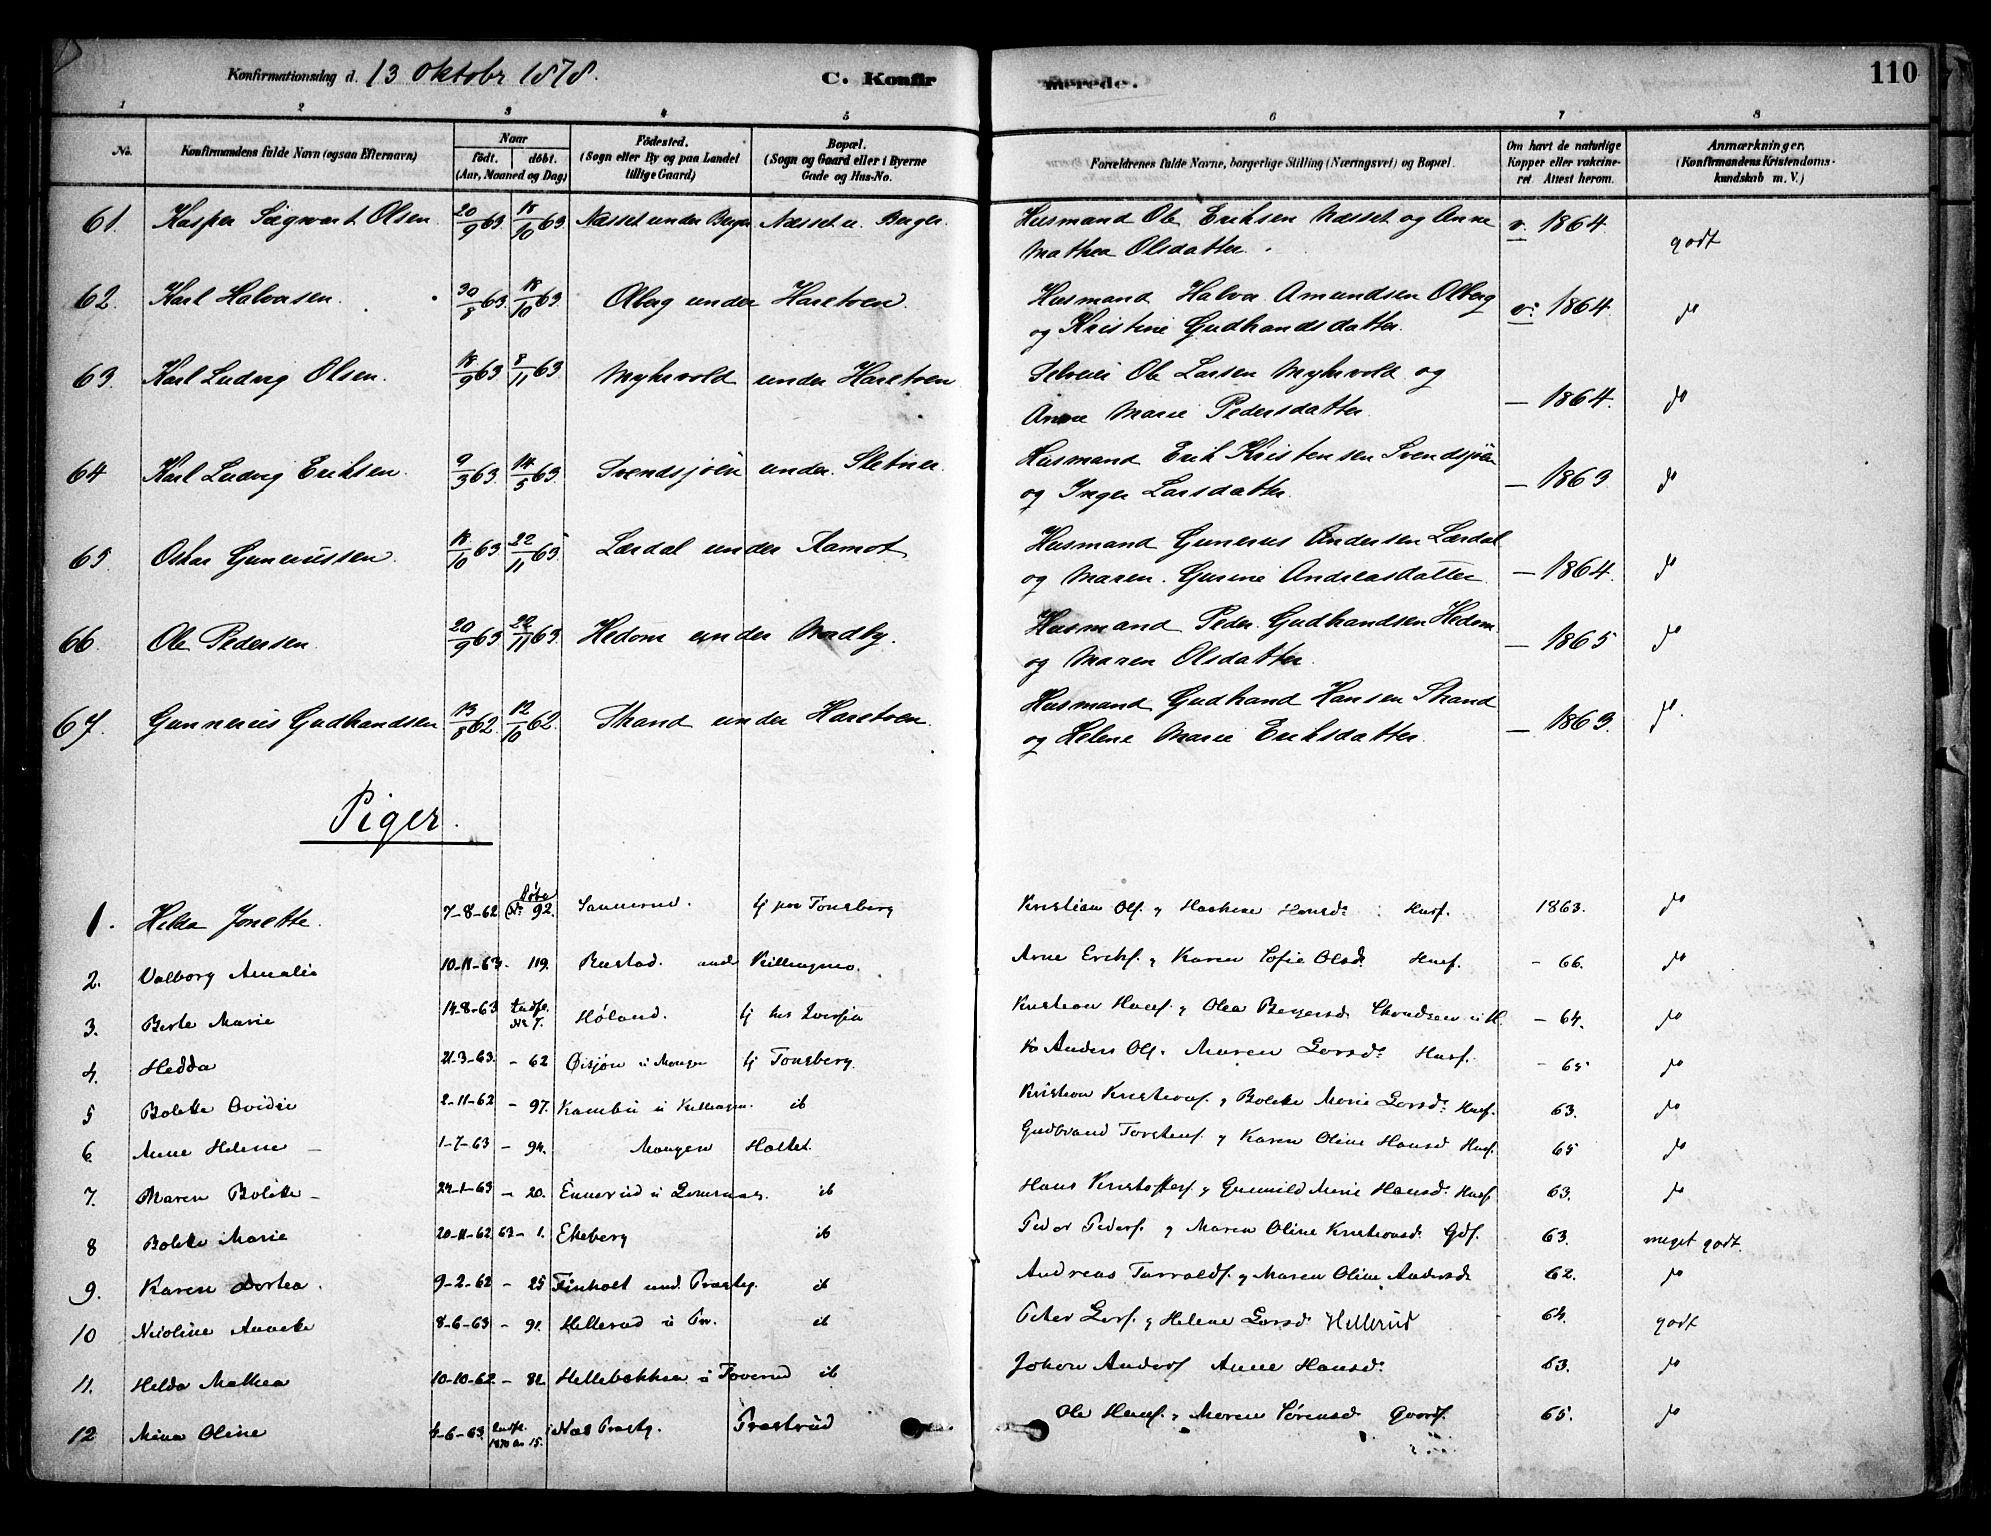 Konfirmationsdag d. 13 Oktobr 1878. C. Konfirmerede. 110
1 2 3 4 5 6 7 8
No. Konfirmandens fulde Navn (ogsaa Efternavn) Naar født. døbt. (Aar, Maaned og Dag) Fødested. (Sogn eller By og paa Landet tillige Gaard) Bopæl. (Sogn og Gaard eller i Byerne Gade og Hus-No. Forældrenes fulde Navne, borgerlige Stilling (Næringsvei) og Bopæl. Om havt de naturlige Kopper eller vakcineret. Attest herom. Anmærkninger. (Konfirmandens Kristendomskundskab m. V.)
61. Kasper Sigwart Olsen 20/9 63 18/10 63 Næsset under Berger Næsset u. Berger. Husmand Ole Eriksen Næsset og Anne v. 1864 godt
Mathea Olsdatter.
62. Karl Halvorsen. 30/8 63 18/10 63 Olberg under Haretven Husmand Halvor Amundsen Olberg v. 1864. do
og Kristine Gudbrandsdatter.
63. Karl Ludvig Olsen. 18/9 63 8/11 63 Myhrvold under Haretven Selveier Ole Larsen Myhrvold og
Anne Marie Pedersdatter. — 1864. do
64 Karl Ludvig Eriksen. 9/3 63 14/5 63 Svendsjøen under Sletner. Husmand Erik Kristensen Svendsjøen
og Inger Larsdatter. — 1863 do
65. Oskar Gunerussen. 18/10 63 22/11 63 Lærdal under Aamot Husmand Gunerus Andersen Lærdal
og Maren Gurine Andreasdatter — 1864. do
66. Ole Pedersen. 20/9 63 22/11 63. Hedom under Nordby. Husmand Peder Gudbrandsen Hedom
og Maren Olsdatter. — 1865 do
67. Gunnerius Gudbrandsen 13/8 62 12/10 62. Strand under Haretven. Husmand Gudbrand Hansen Strand
og Helene Marie Eriksdatter. — 1863. do
Piger.
1. Helda Jonette. 7-8-62 Døbe No 92. Sannerud. fj paa Tonsberg Kristian Ols. og Hansd. Husf. 1863. do
2. Valborg Amalie 10-11-63 - 119. Rustad und Killingmo. Arne Erikf. og Karen Sofie Olsd. Husf. - 66. do
3. Berte Marie 14-8-63 No 7. Høland. fj hos Kristian Hansf. og Olea Bergersd. - 64. do
4. Hedda 21-3-63. - 62 Øisjøn u Mangen fj Tonsberg. Anders Olf. Maren Larsd. Husf. - 65 do
5 Bolette Ovidie 2-11-62 - 97. Kambu u Killingm. ib Kristian Kristianf. og Bolette Marie Larsd. Husf. 63. do
6. Anne Helene — 1-7-63 - 94. Mangen Holtet. Gudbrand Torstenf. og Karen Oline Hansd. Husf. 65 do
7. Maren Bolette — 24-1-63 - 20. Ennerud u ib Hans Kristofferf. og Gunnild Marie Hansd. Husf 63. do
8 Bolette Marie 20-11-62 63- 1. Ekeberg ib Peder Pederf. og Maren Oline Kristiansd. Gdf. 63. meget godt.
9. Karen Dortea. 9-2-62 - 25 Finholt und. Præstg. ib Andreas Torvaldf. og Maren Oline Andersd. 62. do
10 Nicoline Annette 8-6-63 - 91. Hellerud u Pr. ib Peter Larf. og Helene Larsd Hellerud 64. godt
11. Helda Mathea 10-10-62 - 82. Hellebekken u Toverud ib Johan Anderf Anne Hansd. 63. do
12 Mina Oline 4-6-63. 1870 No 15. Præstg. Præsterud Ole Hansf. og Maren Sørensd. Gaardf. 65. do